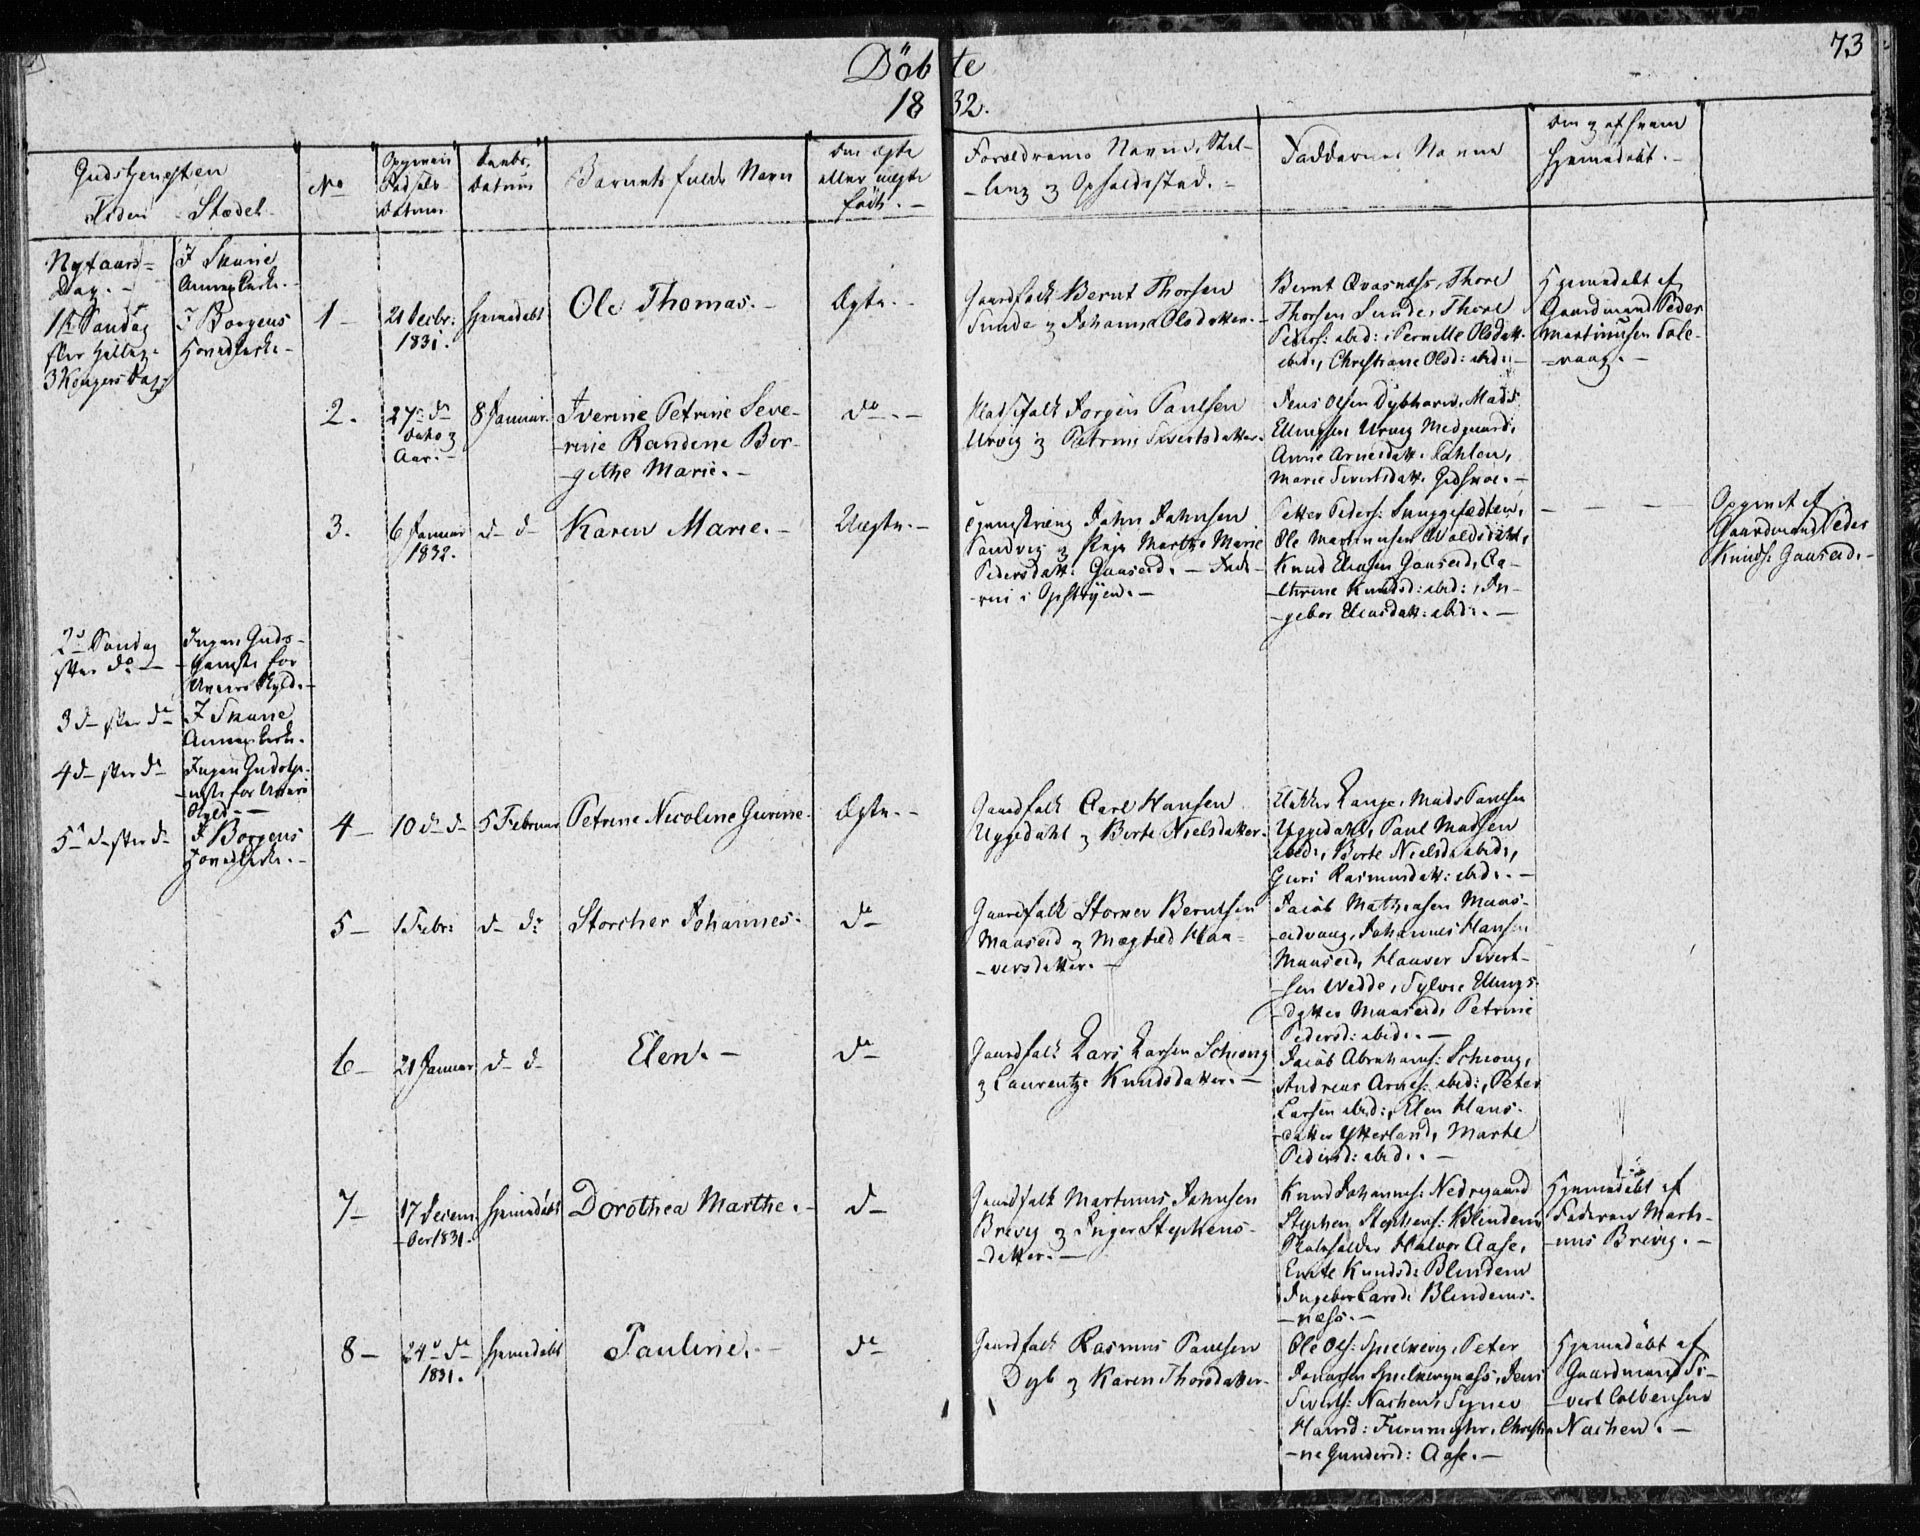 73
Döbte
1832.
Gudstjenesten
Tiden Stædet
No
Opgiven
Födsels
Datum
Daabs-
Datum
Barnets fulde Navn
Om ægte
eller uægte
født. -
Forældrenes Navne, Stil-
-ling og Opholdssted. -
Faddernes Navne
Om og af hvem
hjemmedøbt. -
Nytaars-
Dag. -
I Skuue
Annexkirke. -
1te Söndag
efter Hellig-
3 Kongers Dag
I Borgens
Hovedkirke -
1 -
21 Decbr:
1831.
hjemmedøbt
Ole Thomas. -
Ægte. -
Gaardfolk Bernt Thorsen
Sunde og Johanna Olsdatter. -
Bernt Qvasnæss, Thore
Thorsen Sunde, Thore
Peders: ibid:, Pernille Olsdatt:
ibid:, Christiane Olsd: ibid: -
Hjemmedøbt af
Gaardmand Peder
Martinusen Tole-
-vaag. -
2. -
27de do
Aar. -
8 Januar.
Iverine Petrine Seve-
-rine Randine Ber-
-gethe Marie. -
do. -
Pladsfolk Jørgen Paulsen
Urvig og Petrine Sivertsdatter.
Jens Olsen Dybhavn, Mads
Ellingsen Urvig Medgaard,
Anne Arnesdatt:
Marie Sivertsdatt: Godsnöe. -
3.
6 Januar
1832.
d- d-
Karen Marie. -
Uægte. -
John Johnsen
Sandvig og Pige Marthe Marie
Pedersdatt: Gaaseid. - Fade-
-ren i Opstryen. -
Petter Peders:
Ole Martinusen Woldsdahl,
Knud Eliasen Gaaseid, Ca-
-thrine Knudsd: ibid:, In-
-gebor Eliasdatt: ibid:. -
Opgivet af
Gaardmand Peder
Knuds: Gaaseid. -
2den Söndag
efter do -
Ingen Guds-
tjeneste for
Uveirs Skyld. -
3d- efter do
I Skuue
Annexkirke.
4d- efter do
Ingen Gudstje-
-neste for Uveirs
Skyld. -
5te d- efter do
I Borgens
Hovedkirke. -
4 -
10 d- d-
5 Februar
Petrine Nicoline Gurine.
Ægte. -
Gaardfolk Carl Hansen
Uggedahl og Berte Nielsdatter.
Klokker Lange, Mads Paulsen
Uggedahl, Paul Madsen
ibid:, Berte Nielsd: ibid:,
Guri Rasmusdatt: ibid:. -
5 -
1 Febr:
d- do
Storcher Johannes.
do
Gaardfolk Storker Berntsen
Maaseid og Maghild Haa-
-versdatter. -
Jacob Mathiasen Maas-
-eidvaag, Johannes Hansen
Maaseid, Haaver Sivert-
-sen Wedde, Sylvie Ellings-
-datter Maaseid, Petrine
Pedersd: ibid:. -
6 -
21 Januar
d- d-
Elen. -
do
Gaardfolk Lars Larsen Schiong
og Laurentze Knudsdatter. -
Jacob Abrahams: Schiong,
Andreas Arnes: ibid:, Peter
Larsen ibid:, Elen Hans-
-datter Ytterland, Marte
Pedersd: ibid:. -
7 -
17 Decem-
-ber 1831.
hjemmedøbt
Dorothea Marthe. -
d-
Gaardfolk Martinus Johnsen
Brevig og Inger Stephens-
-datter. -
Knud Johannes: Nedregaard
Stephen Stephens: Blindem
Skoleholder Halvor Aase,
Knudsd: Blindem
Ingebor Larsd: Blindems-
-næss. -
Hjemmedøbt af
Faderen Marti-
-nus Brevig. -
8 -
24de do
1831.
hjemmedøbt
Pauline. -
do
Gaardfolk Rasmus Paulsen
Dyb og Karen Thorsdatter.
Ole Ols: Spielkevig, Peter
Jonassen Spielkevignæss, Jens
Siverts: Nachen, Synev
Havrd: , Christi-
-ne Gundersd: Aase. -
Hjemmedøbt af
Gaardmand Si-
-vert Colbensen
Nachen. -